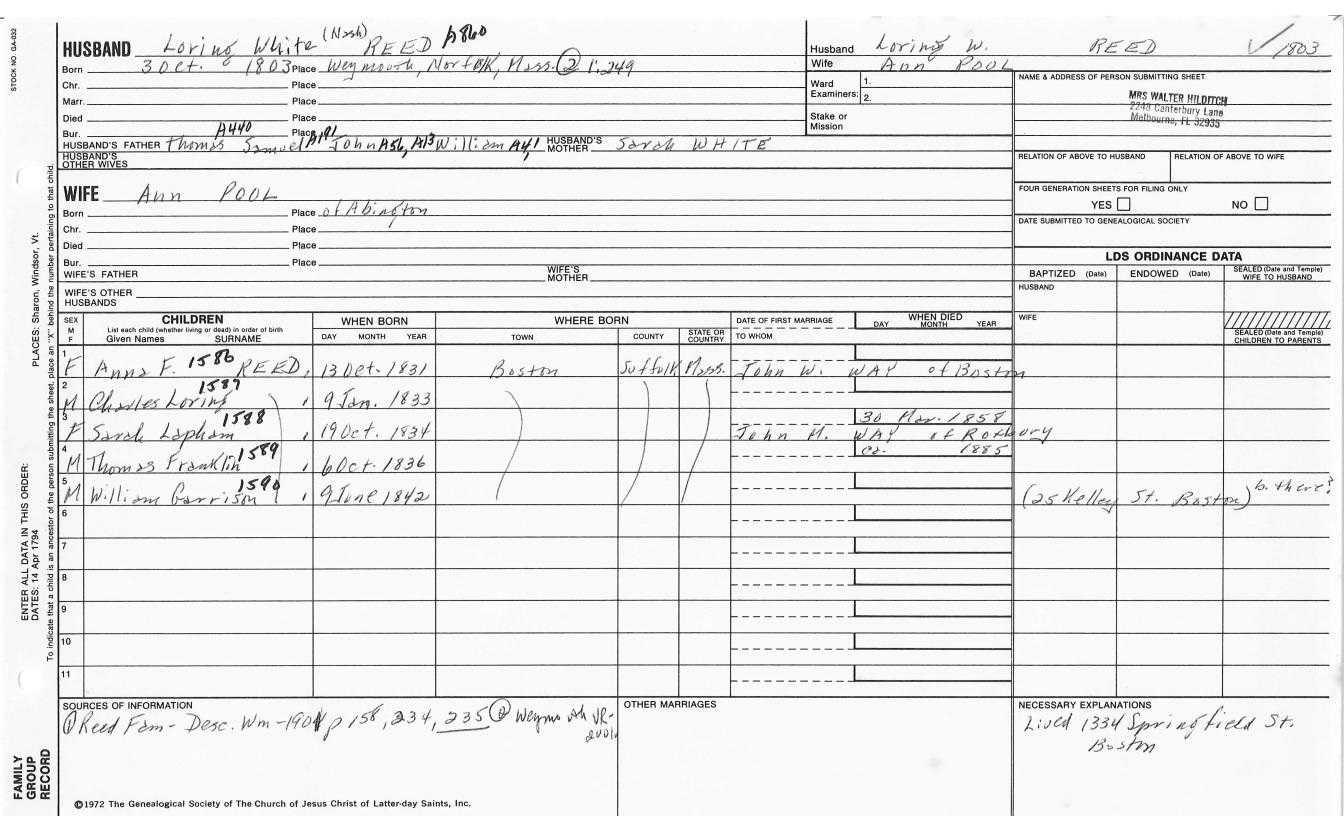 STOCK NO. GA-032
HUSBAND Loring White (Nash) REED A860
Born 3 Oct. 1803 Place Weymouth, Norfolk, Mass. ② 1:249
Chr. Place
Marr. Place
Died Place
Bur. Place
HUSBAND'S FATHER Thomas A440 Samuel A191 John A56, A13 William A4, 1 HUSBAND'S MOTHER Sarah WHITE
HUSBAND'S OTHER WIVES
WIFE Ann POOL
Born Place of Abington
Chr. Place
Died Place
Bur. Place
WIFE'S FATHER WIFE'S MOTHER
WIFE'S OTHER HUSBANDS
Husband Loring W. REED ✓ 1803
Wife Ann POOL
Ward Examiners: 1.
2.
Stake or Mission
NAME & ADDRESS OF PERSON SUBMITTING SHEET
MRS WALTER HILDITCH
2248 Canterbury Lane
Melbourne, FL 32935
RELATION OF ABOVE TO HUSBAND RELATION OF ABOVE TO WIFE
FOUR GENERATION SHEETS FOR FILING ONLY
YES NO
DATE SUBMITTED TO GENEALOGICAL SOCIETY
LDS ORDINANCE DATA
BAPTIZED (Date) ENDOWED (Date) SEALED (Date and Temple) WIFE TO HUSBAND
HUSBAND
WIFE
SEALED (Date and Temple) CHILDREN TO PARENTS
SEX M F
CHILDREN
List each child (whether living or dead) in order of birth
Given Names SURNAME
WHEN BORN
DAY MONTH YEAR
WHERE BORN
TOWN COUNTY STATE OR COUNTRY
DATE OF FIRST MARRIAGE
TO WHOM
WHEN DIED
DAY MONTH YEAR
1 F Anna F. 1586 REED, 13 Oct. 1831 Boston Suffolk Mass. John W. WAY of Boston
2 M Charles Loring 1587, 9 Jan. 1833
3 F Sarah Lapham 1588, 19 Oct. 1834 30 Mar. 1858 John M. WAY of Roxbury
4 M Thomas Franklin 1589, 6 Oct. 1836 ca. 1885
5 M William Garrison 1590, 9 June 1842 (25 Kelley St. Boston) b. there?
6
7
8
9
10
11
SOURCES OF INFORMATION
① Reed Fam- Desc. Wm-1901 p 158, 234, 235 ② Weymouth VR-
OTHER MARRIAGES
NECESSARY EXPLANATIONS
Lived 1334 Springfield St.
Boston
©1972 The Genealogical Society of The Church of Jesus Christ of Latter-day Saints, Inc.
FAMILY GROUP RECORD
ENTER ALL DATA IN THIS ORDER:
DATES: 14 Apr 1794
PLACES: Sharon, Windsor, Vt.
To indicate that a child is an ancestor of the person submitting the sheet, place an "X" behind the number pertaining to that child.